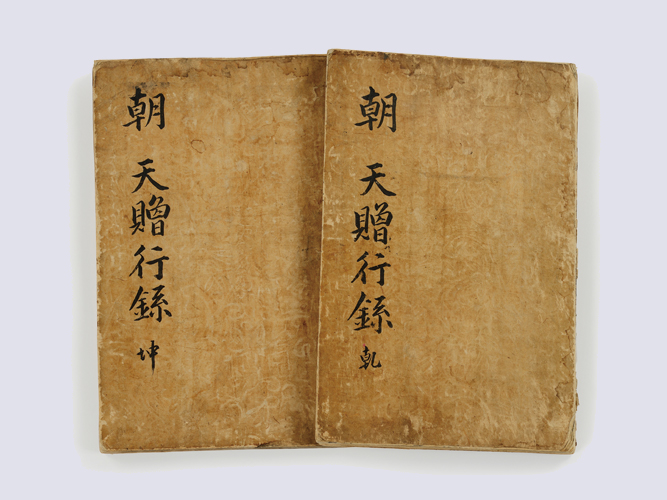 朝天贈行錄 乹
朝天贈行錄 坤